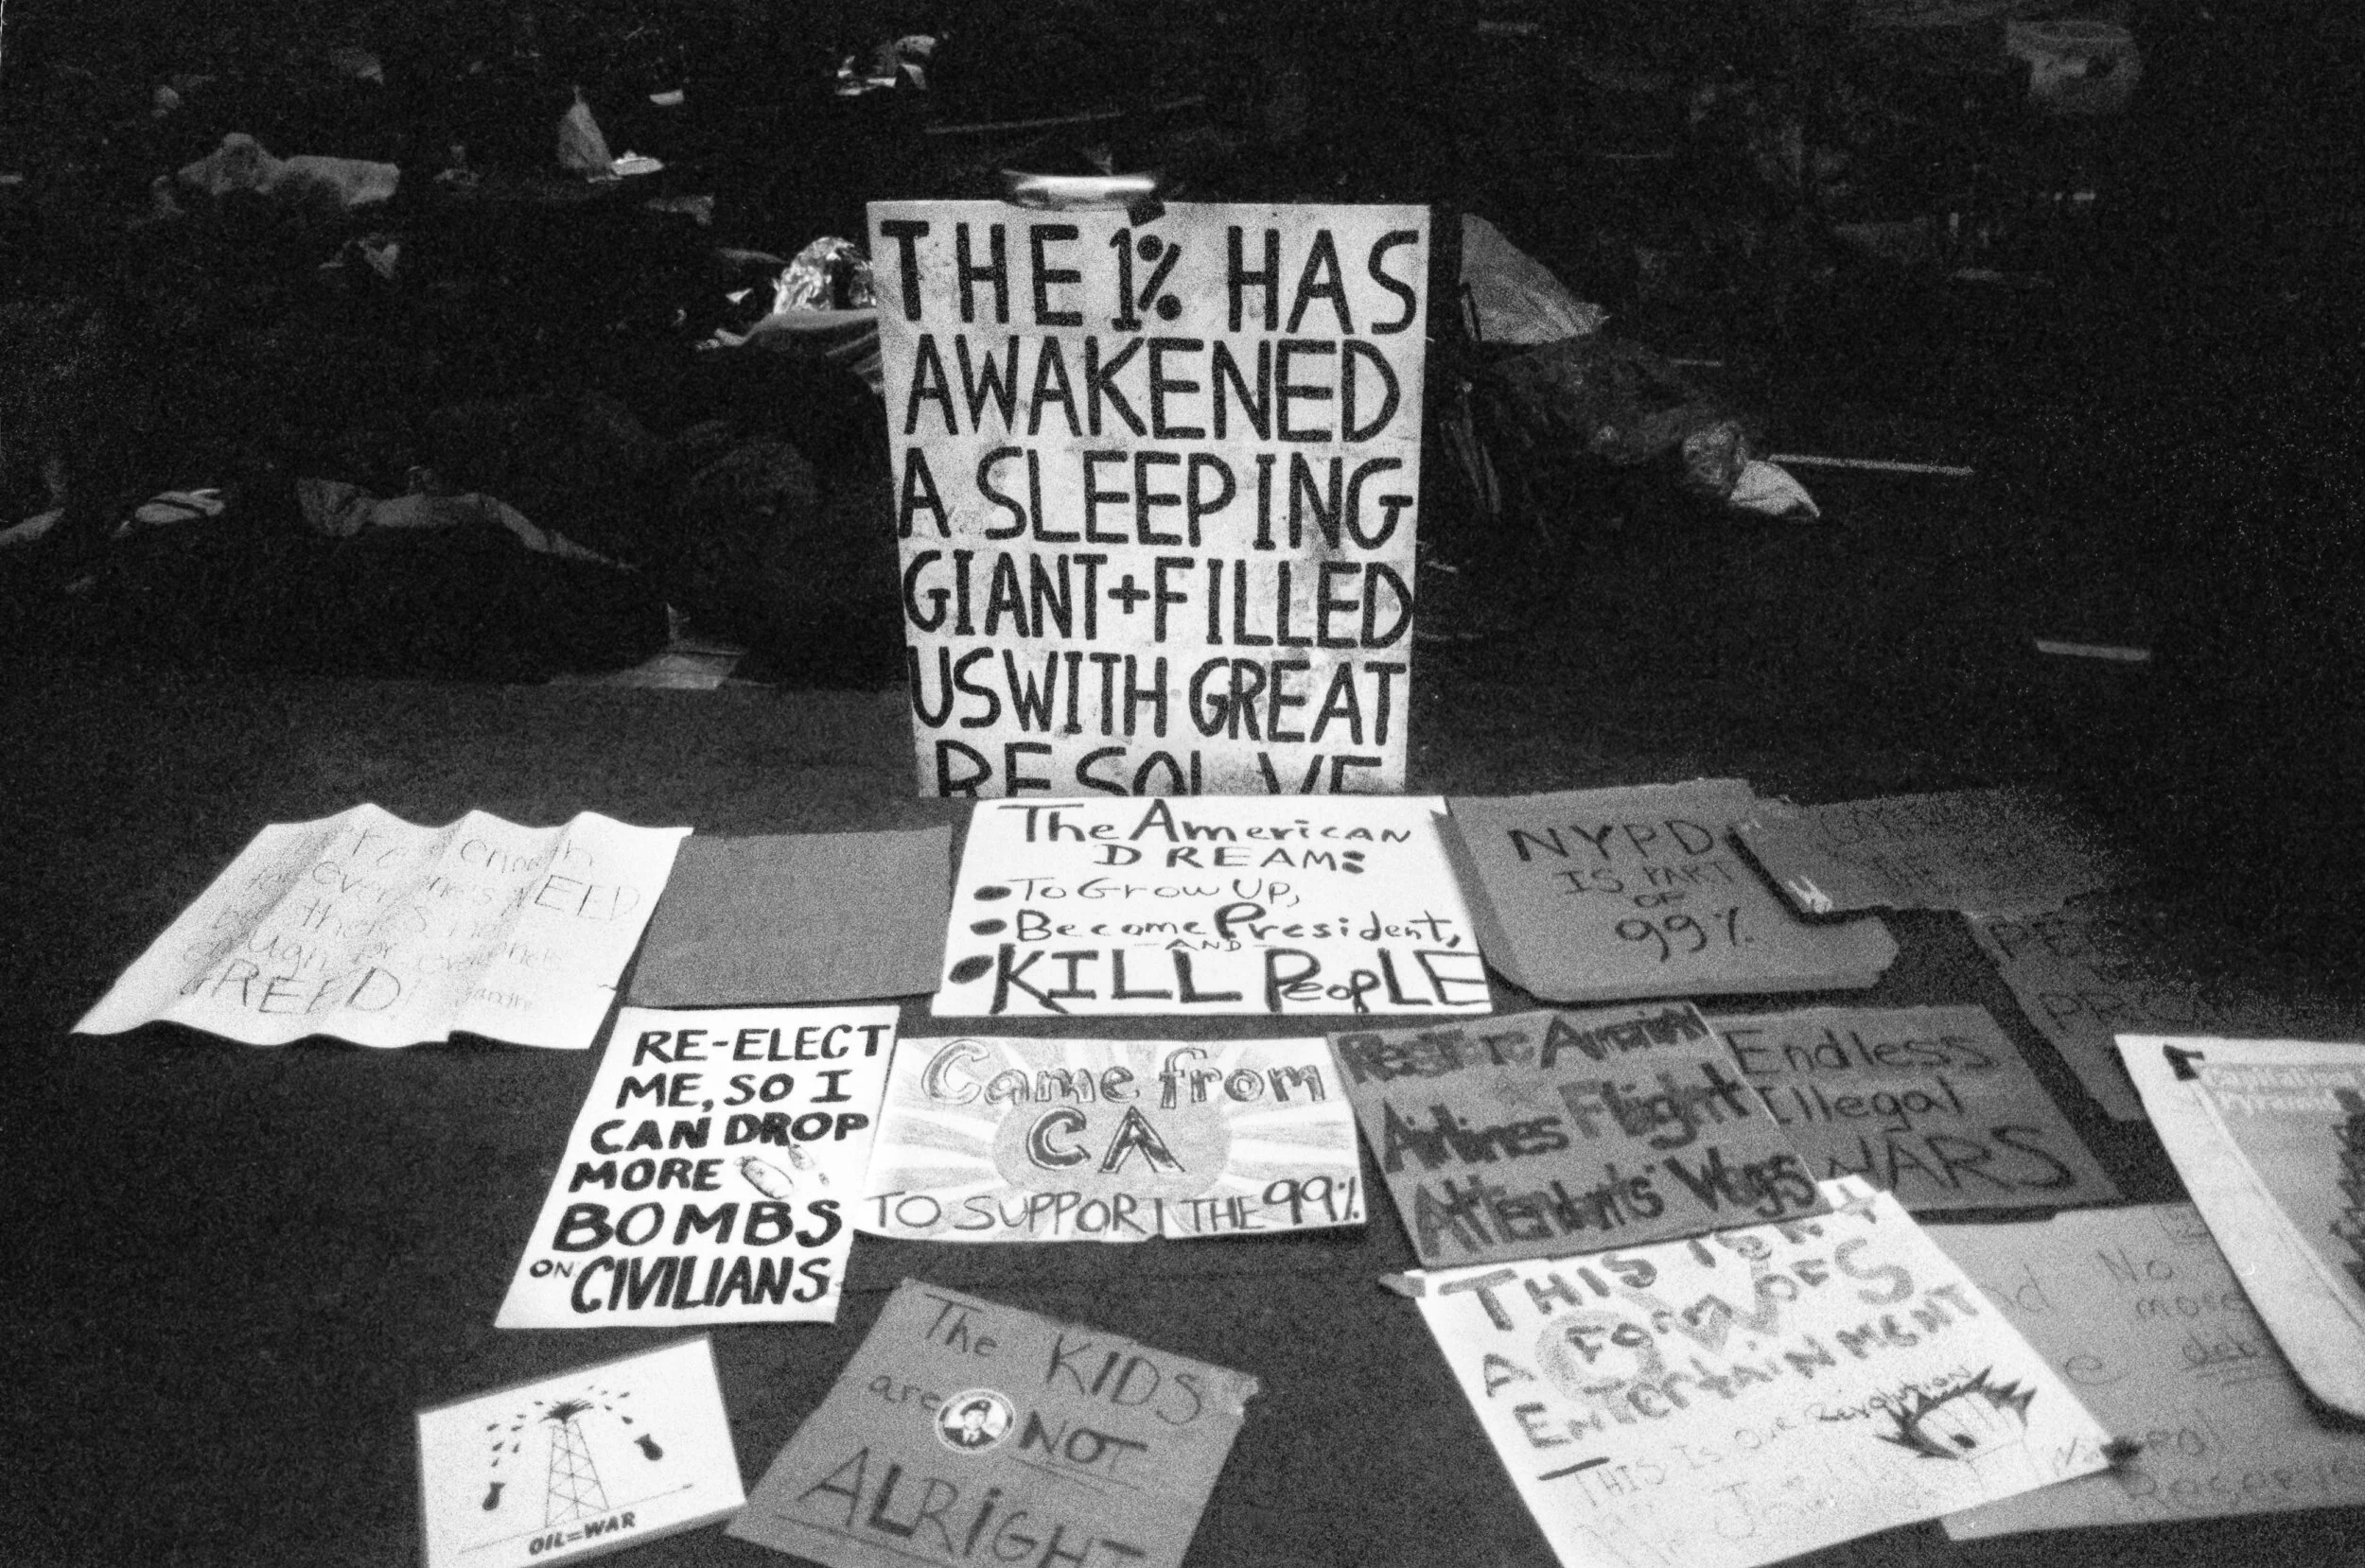 THE 1% HAS
AWAKENED
A SLEEPING
GIANT+FILLED
US WITH GREAT
RESOLVE
enough
for everyone's NEED
but there's not
enough for everyone's
GREED!
The American
DREAM:
To Grow Up,
Become President,
AND
KILL PeopLE
NYPD
IS PART
OF
99%
RE-ELECT
ME, SO I
CAN DROP
MORE
BOMBS
ON CIVILIANS
Came from
CA
TO SUPPORT THE 99%
Restore American
Airlines Flight
Attendants' Wages
Endless
Illegal
WARS
OIL=WAR
The KIDS
are NOT
ALRiGHT
THIS ISN'T
A Form OF
EntertainmENT
THIS IS OUR Revolution
No
more